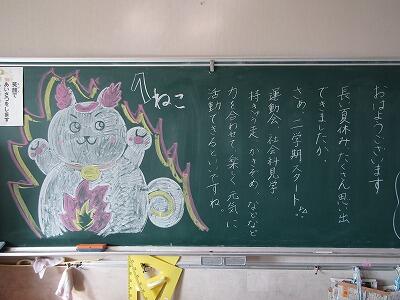 おはようございます
長い夏休み、たくさん思い出
できましたか。
さぁ、二学期スタート!
運動会、社会科見学
かきぞめ、などなど
力を合わせて、楽しく元気に
活動できるといいですね。
ねこ
笑顔で
あいさつをします